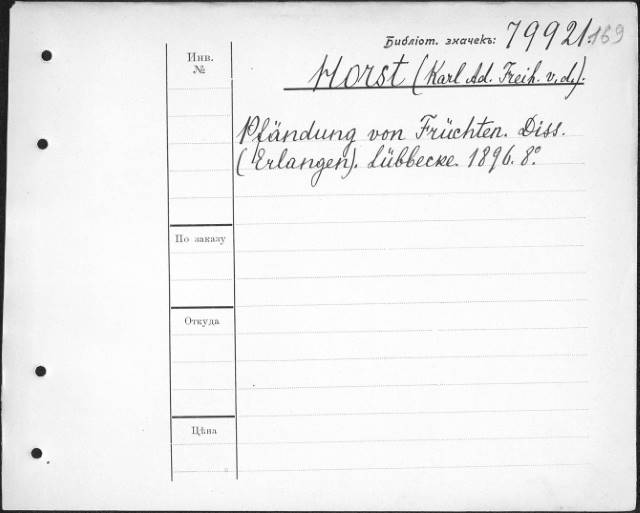 Библіот. значекъ: 79921.169
Инв.
№
Horst (Karl Ad. Freih. v. d.).
Pfändung von Früchten. Diss.
(Erlangen). Lübbecke. 1896. 8°.
По заказу
Откуда
Цѣна